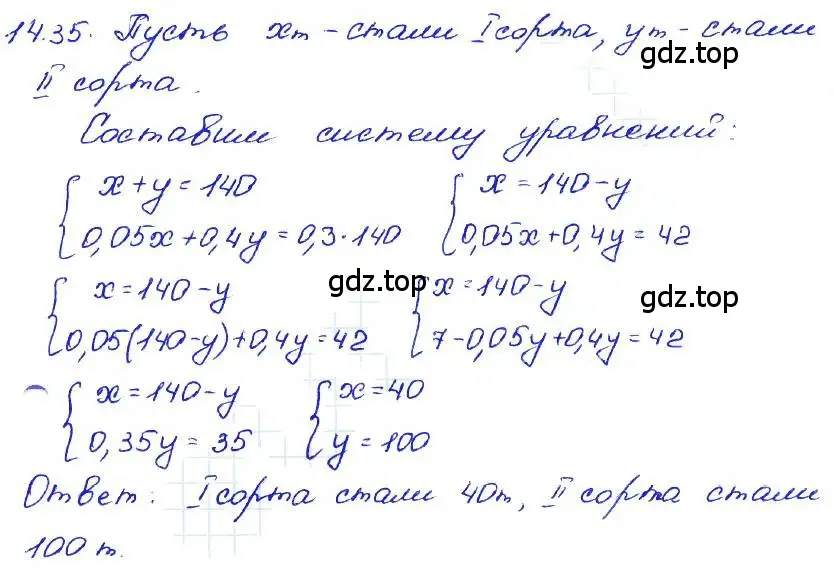 14.35. Пусть xт - стали I сорта, yт - стали
gdz.top
II сорта.
Составим систему уравнений:
{ x + y = 140 { x = 140 - y
{ 0,05x + 0,4y = 0,3 · 140 { 0,05x + 0,4y = 42
gdz.top gdz.top
{ x = 140 - y { x = 140 - y
{ 0,05(140 - y) + 0,4y = 42 { 7 - 0,05y + 0,4y = 42
{ x = 140 - y { x = 40
{ 0,35y = 35 { y = 100
Ответ: I сорта стали 40т, II сорта стали
100 т.